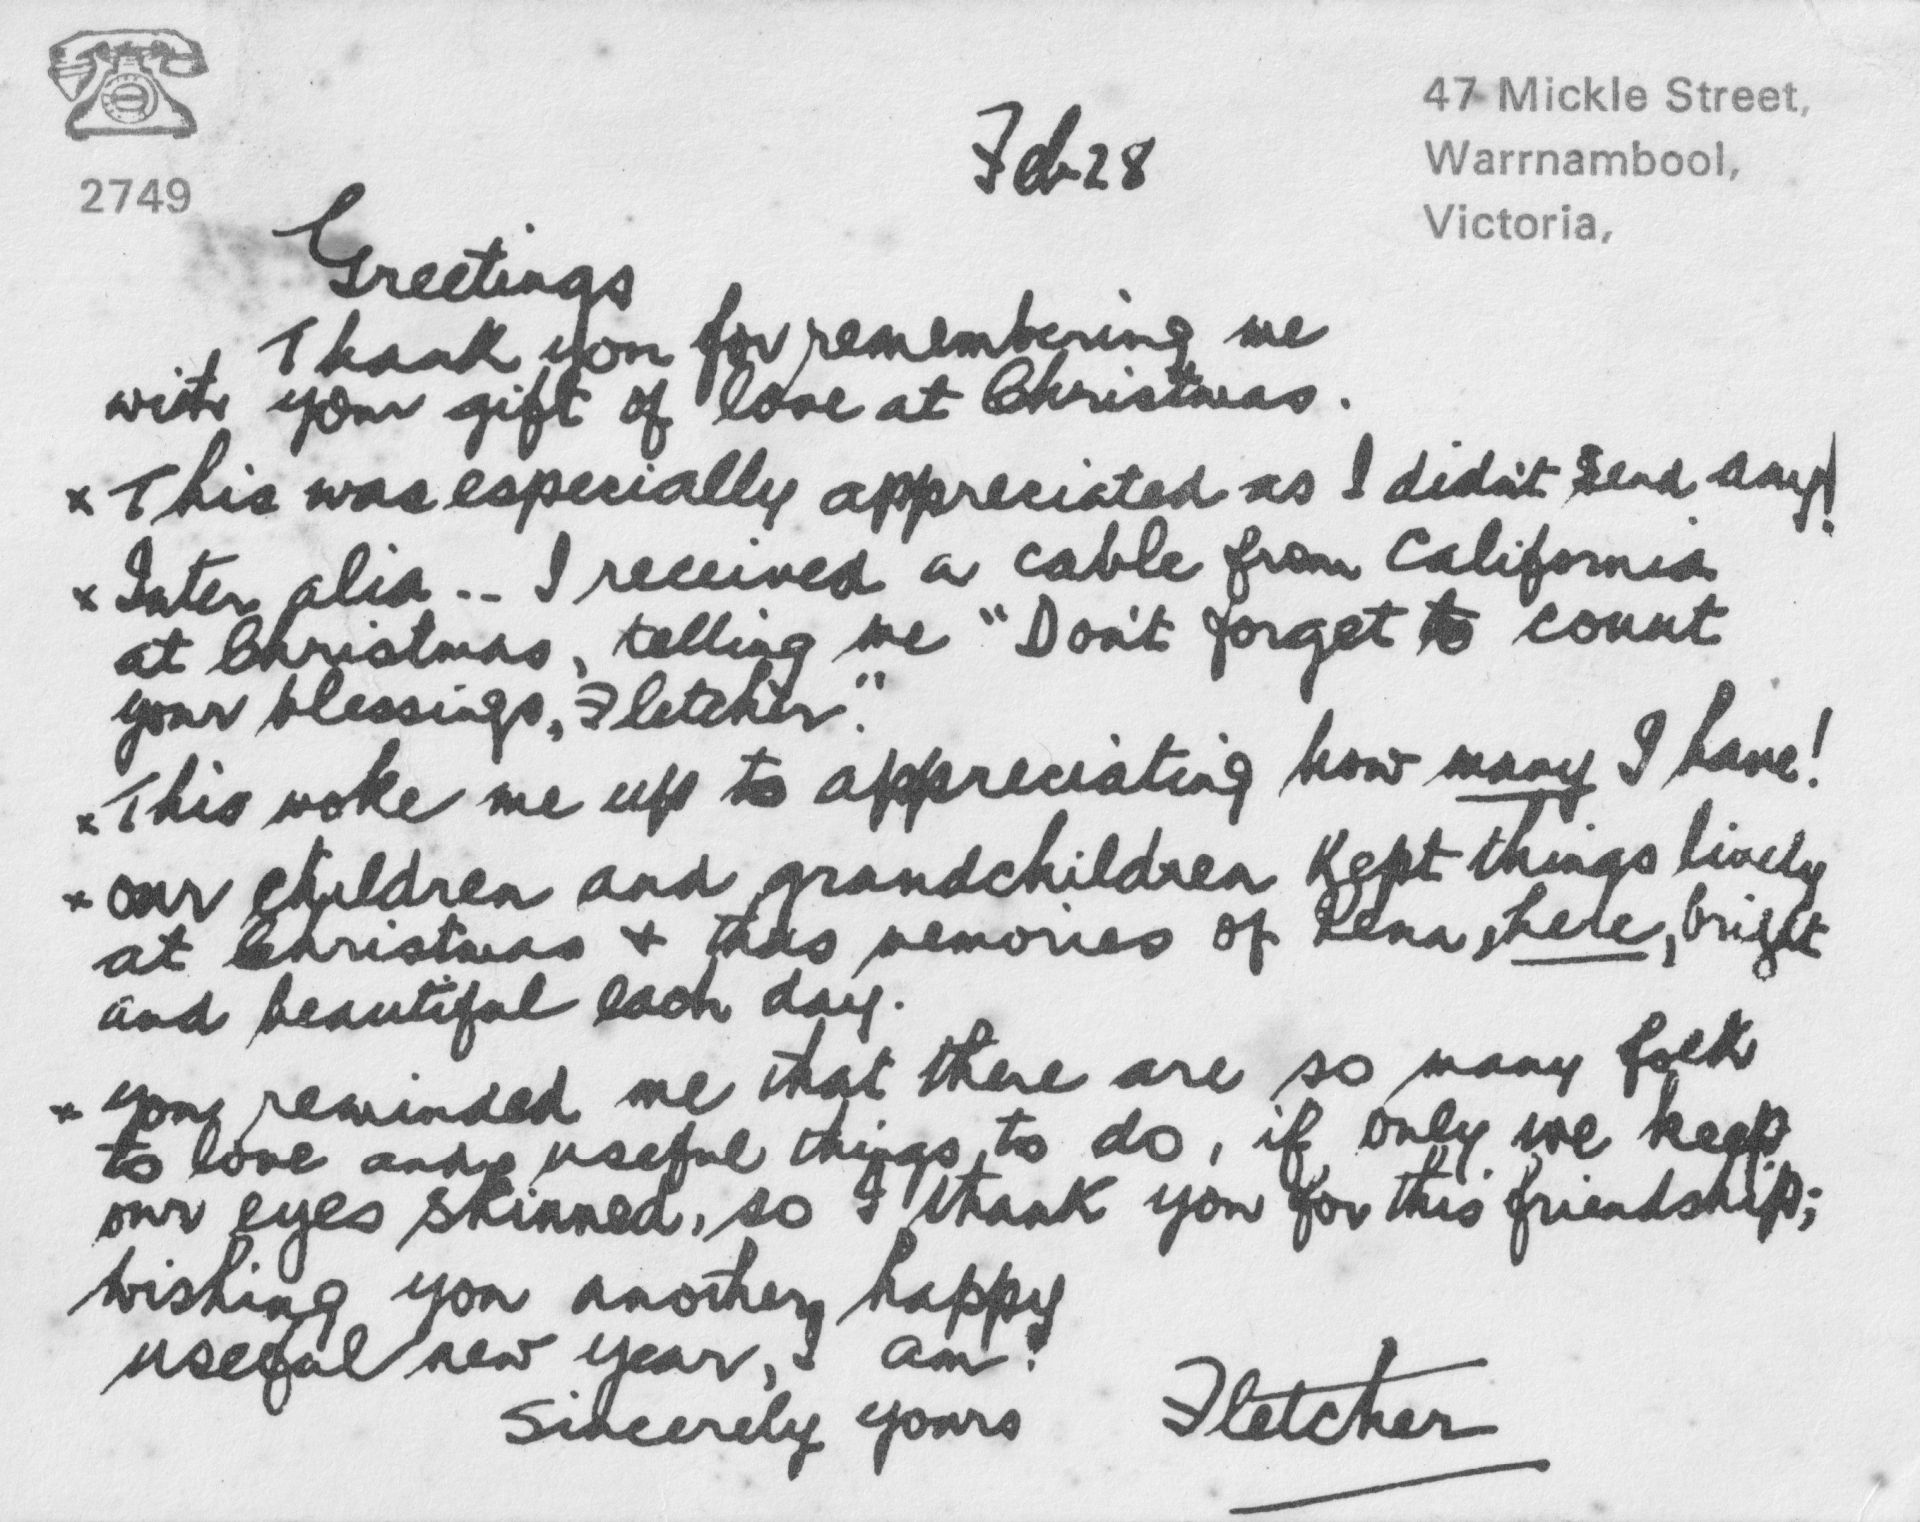 47 Mickle Street,
Warrnambool,
Victoria,
2749
Feb 28
Greetings
Thank you for remembering me
with your gift of love at Christmas.
x This was especially appreciated as I didn't send any!
x Inter alia .. I received a cable from California
at Christmas, telling me "Don't forget to count
your blessings, Fletcher."
x This woke me up to appreciating how many I have!
x our children and grandchildren kept things lively
at Christmas + thus memories of Rena, here, bright
and beautiful each day.
x you reminded me that there are so many folk
to love and useful things to do, if only we keep
our eyes skinned, so I thank you for this friendship;
wishing you another, happy
useful new year, I am:
Sincerely yours Fletcher